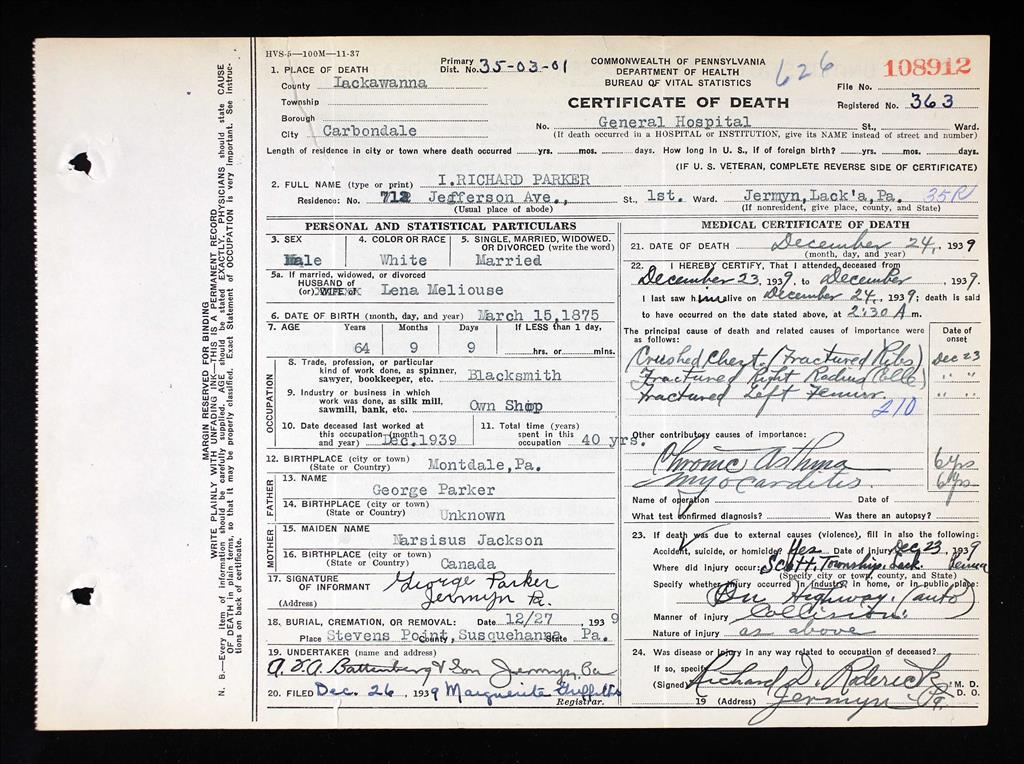 HVS-5—100M—11-37
1. PLACE OF DEATH
County Lackawanna
Township
Borough
City Carbondale
Primary Dist. No. 35-03-01
COMMONWEALTH OF PENNSYLVANIA
DEPARTMENT OF HEALTH
BUREAU OF VITAL STATISTICS
CERTIFICATE OF DEATH
626
108912
File No.
Registered No. 363
No. General Hospital St., Ward.
(If death occurred in a HOSPITAL or INSTITUTION, give its NAME instead of street and number)
Length of residence in city or town where death occurred yrs. mos. days. How long in U. S., if of foreign birth? yrs. mos. days.
(IF U. S. VETERAN, COMPLETE REVERSE SIDE OF CERTIFICATE)
2. FULL NAME (type or print) I.RICHARD PARKER
Residence: No. 712 Jefferson Ave., St., 1st. Ward. Jermyn,Lack'a,Pa. 35R
(Usual place of abode) (If nonresident, give place, county, and State)
PERSONAL AND STATISTICAL PARTICULARS
3. SEX Male
4. COLOR OR RACE White
5. SINGLE, MARRIED, WIDOWED, OR DIVORCED (write the word) Married
5a. If married, widowed, or divorced
HUSBAND of
(or) WIFE of Lena Meliouse
6. DATE OF BIRTH (month, day, and year) March 15,1875
7. AGE Years Months Days If LESS than 1 day,
64 9 9 hrs. or mins.
OCCUPATION
8. Trade, profession, or particular kind of work done, as spinner, sawyer, bookkeeper, etc. Blacksmith
9. Industry or business in which work was done, as silk mill, sawmill, bank, etc. Own Shop
10. Date deceased last worked at this occupation (month and year) Dec.1939
11. Total time (years) spent in this occupation 40 yrs.
12. BIRTHPLACE (city or town) (State or Country) Montdale,Pa.
FATHER
13. NAME George Parker
14. BIRTHPLACE (city or town) (State or Country) Unknown
MOTHER
15. MAIDEN NAME Narsisus Jackson
16. BIRTHPLACE (city or town) (State or Country) Canada
17. SIGNATURE OF INFORMANT George Parker
(Address) Jermyn Pa.
18. BURIAL, CREMATION, OR REMOVAL: Date 12/27, 1939
Place Stevens Point, County, Susquehanna State Pa.
19. UNDERTAKER (name and address)
A. & A. Battenberg & Son Jermyn, Pa
20. FILED Dec. 26, 1939 Marguerite Griffiths
Registrar.
MEDICAL CERTIFICATE OF DEATH
21. DATE OF DEATH December 24, 1939
(month, day, and year)
22. I HEREBY CERTIFY, That I attended deceased from
December 23, 1939, to December, 1939.
I last saw him alive on December 24, 1939; death is said
to have occurred on the date stated above, at 2:30 A m.
The principal cause of death and related causes of importance were as follows:
Date of onset
Crushed Chest, (Fractured Ribs) Dec 23
Fractured Right Radius (Colle) " "
Fractured Left Femur " "
210
Other contributory causes of importance:
Chronic Asthma 6 yrs
Myocarditis. 6 yrs
Name of operation Date of
What test confirmed diagnosis? Was there an autopsy?
23. If death was due to external causes (violence), fill in also the following:
Accident, suicide, or homicide Yes Date of injury Dec 23, 1939
Where did injury occur: Scott. Township. Lack. Penna
(Specify city or town, county, and State)
Specify whether injury occurred in industry, in home, or in public place:
On Highway. (auto)
Manner of injury Collision.
Nature of injury as above
24. Was disease or injury in any way related to occupation of deceased?
If so, specify
(Signed) Richard D. Roderick M. D. D. O.
19 (Address) Jermyn Pa.
MARGIN RESERVED FOR BINDING
WRITE PLAINLY WITH UNFADING INK—THIS IS A PERMANENT RECORD
N. B.—Every item of information should be carefully supplied. AGE should be stated EXACTLY. PHYSICIANS should state CAUSE OF DEATH in plain terms, so that it may be properly classified. Exact Statement of OCCUPATION is very important. See instructions on back of certificate.